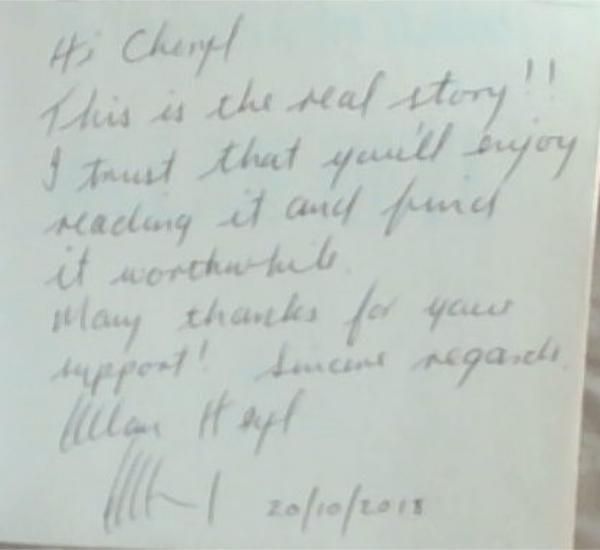 Hi Cheryl
This is the real story!!
I trust that you'll enjoy
reading it and find
it worthwhile.
Many thanks for your
support! Sincere regards.
Allan Heyl
20/10/2018